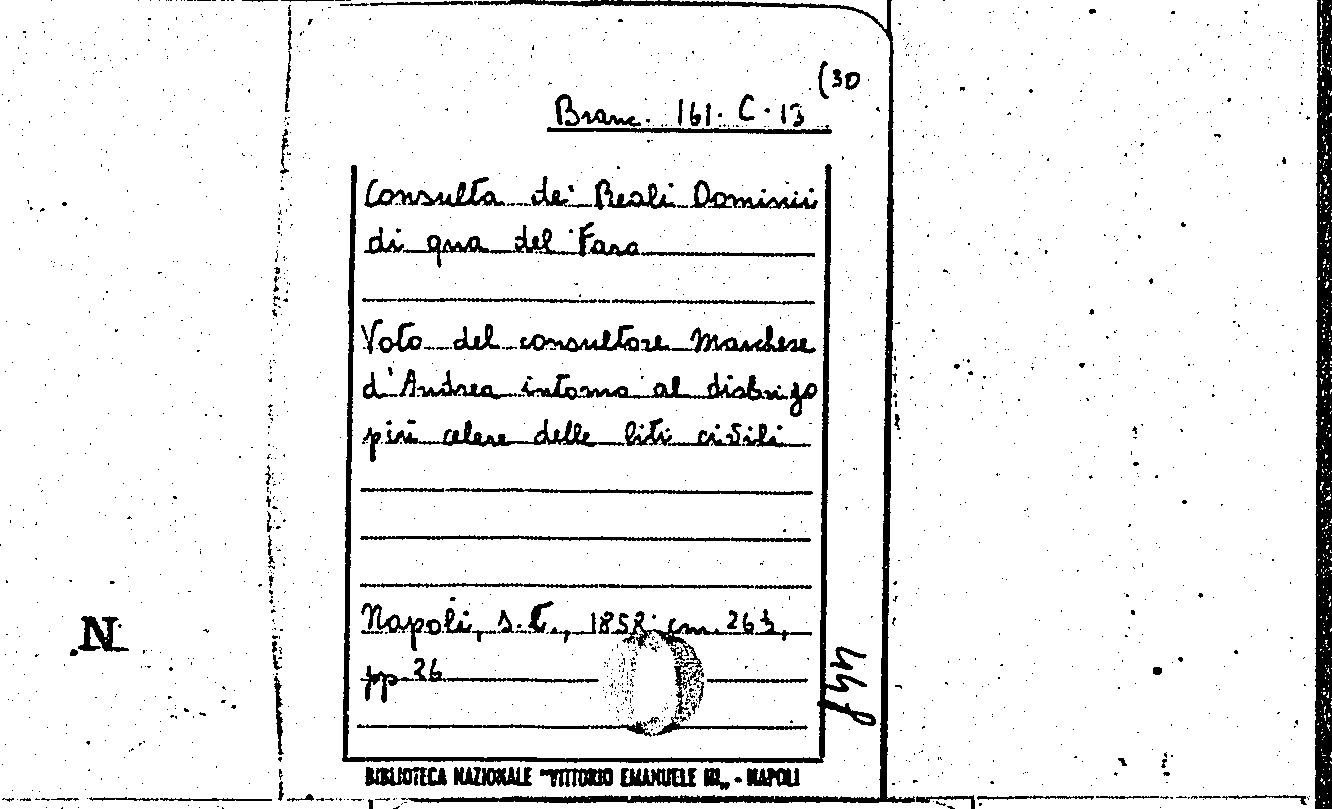 (30
Branc. 161. C. 13
Consulta de' Reali Dominii
di qua del Faro
Voto del consultore Marchese
d'Andrea intorno al disbrigo
più celere delle liti civili
Napoli, s.t., 1852. cm. 263,
pp. 26
N
BIBLIOTECA NAZIONALE "VITTORIO EMANUELE III" - NAPOLI